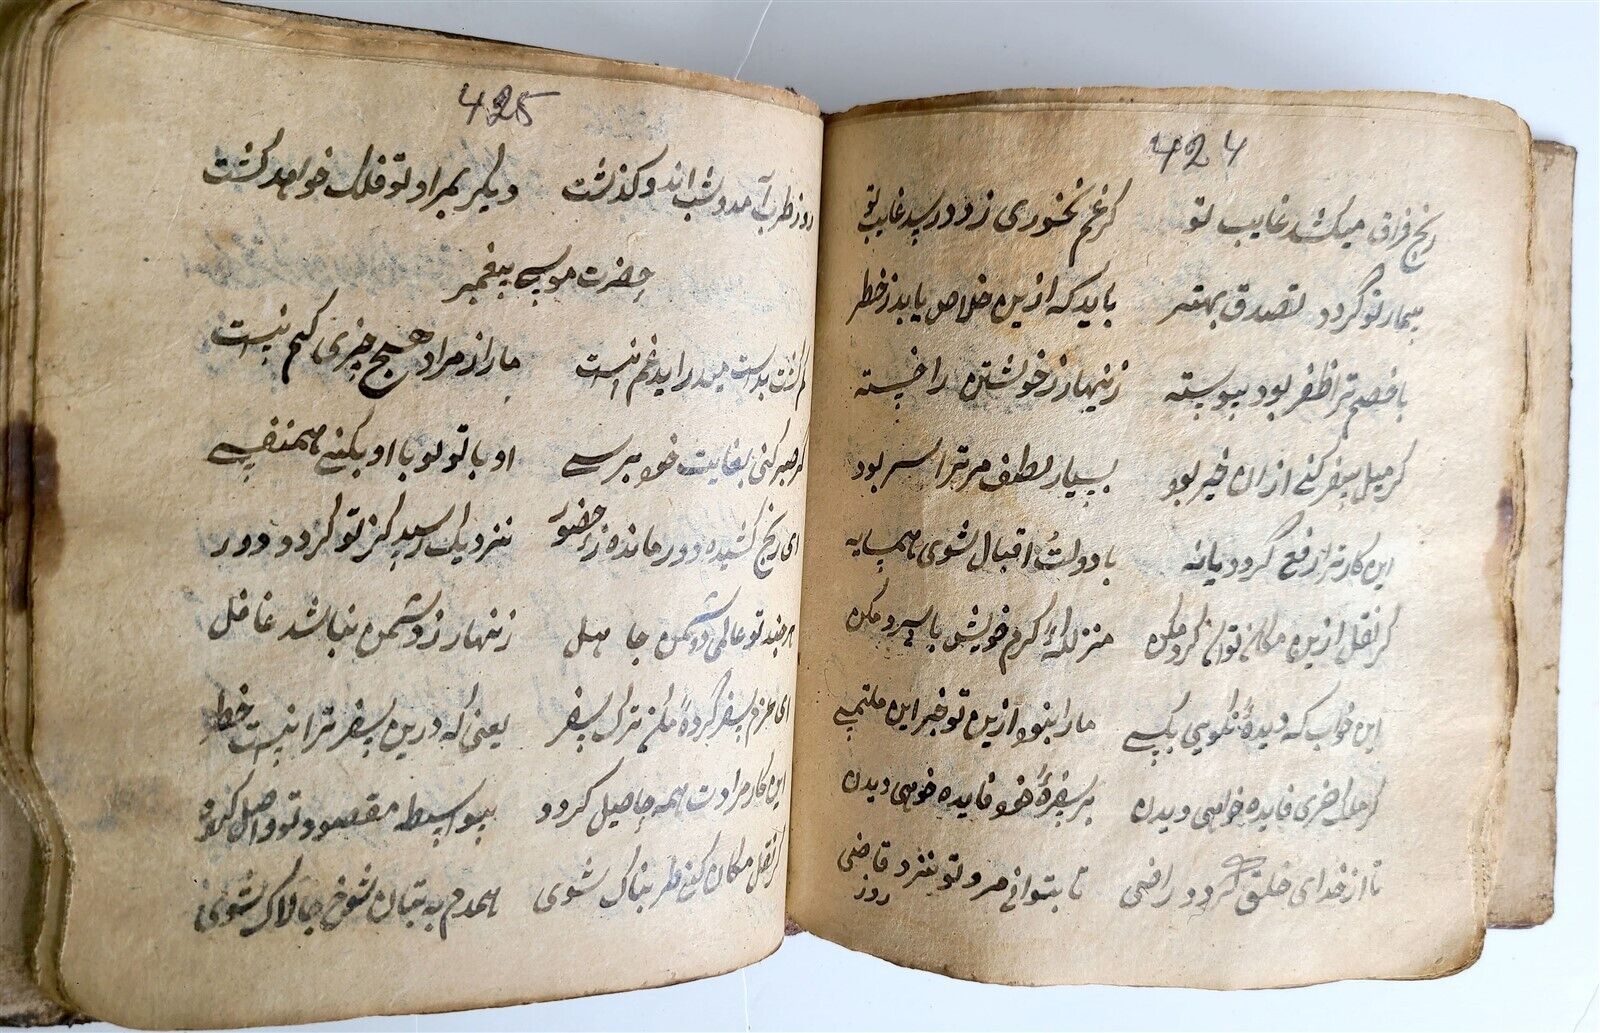 424
رنج فراق میکشد غایب تو گر غم نخوری زود رسد غایب تو
بیمار تو گردد تصدق بهتر باید که ازین خلاص یابد ز خطر
با خصم ترا ظفر بود پیوسته زینهار ز خویشتن را خسته
گر میل سفر کنی ازان خیر بود بسیار لطف مر ترا سر بود
این کار ترا رفع گردد یا نه با دولت اقبال شوی همسایه
گر نقل ازین مکان توان کرد مکن منزلکه کرم خویش را سرد مکن
این خواب که دیدهٔ نگویی بکسی ما را نبود ازین تو خبر این ملتمسی
گر ملک خری فایده خواهی دیدن بر سفرهٔ خود فایده خواهی دیدن
تا از خدای خلق گردد راضی تا بتوانی مرو تو نزد قاضی
روز
425
روز طرب آمد و شب اندوه گذشت دیگر بمراد تو فلک خواهد گشت
حضرت موسی پیغمبر
گم گشت بدست میدراید غم نیست ما را ز مراد هیچ چیزی کم نیست
گر صبر کنی بغایت خود برسی او با تو تو با او بکنی همنفسی
ای رنج کشیده دور مانده ز حضور نزدیک رسید کز تو گردد دور
هر چند تو عالمی دشمن جاهل زنهار ز دشمن نباشد غافل
ای عزم سفر کردهٔ مکن ترک سفر یعنی که درین سفر ترا نیست خطر
این کار مرادت همه حاصل گردد بیواسطه مقصود تو واصل گردد
گر نقل مکان کنی طربناک شوی همدم به بتان شوخ چالاک شوی